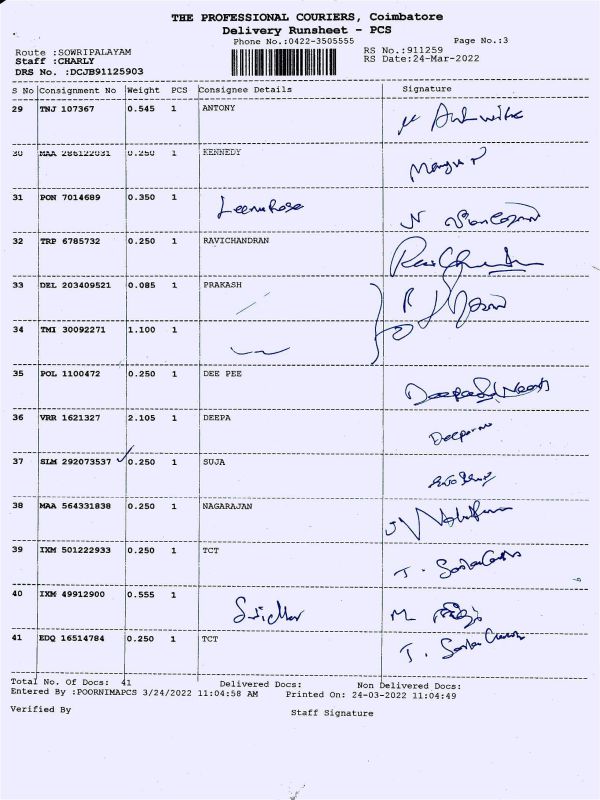 THE PROFESSIONAL COURIERS, Coimbatore
Delivery Runsheet - PCS
Phone No.:0422-3505555 Page No.:3
Route :SOWRIPALAYAM RS No.:911259
Staff :CHARLY RS Date:24-Mar-2022
DRS No. :DCJB91125903
S No Consignment No Weight PCS Consignee Details Signature
29 TNJ 107367 0.545 1 ANTONY
30 MAA 286122031 0.250 1 KENNEDY
31 PON 7014689 0.350 1 Leema Rose
32 TRP 6785732 0.250 1 RAVICHANDRAN
33 DEL 203409521 0.085 1 PRAKASH
34 TMI 30092271 1.100 1
35 POL 1100472 0.250 1 DEE PEE
36 VRR 1621327 2.105 1 DEEPA
37 SLM 292073537 0.250 1 SUJA
38 MAA 564331838 0.250 1 NAGARAJAN
39 IXM 501222933 0.250 1 TCT
40 IXM 49912900 0.555 1
41 EDQ 16514784 0.250 1 TCT
Total No. Of Docs: 41 Delivered Docs: Non Delivered Docs:
Entered By :POORNIMAPCS 3/24/2022 11:04:58 AM Printed On: 24-03-2022 11:04:49
Verified By Staff Signature